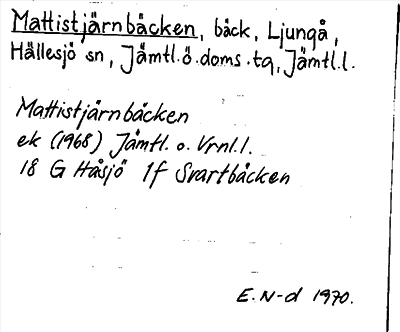 Mattistjärnbäcken, bäck, Ljungå,
Hällesjö sn, Jämtl.ö.doms.tg, Jämtl.l.
Mattistjärnbäcken
ek (1968) Jämtl. o. Vrnl.l.
18 G Håsjö 1f Svartbäcken
E. N-d 1970.